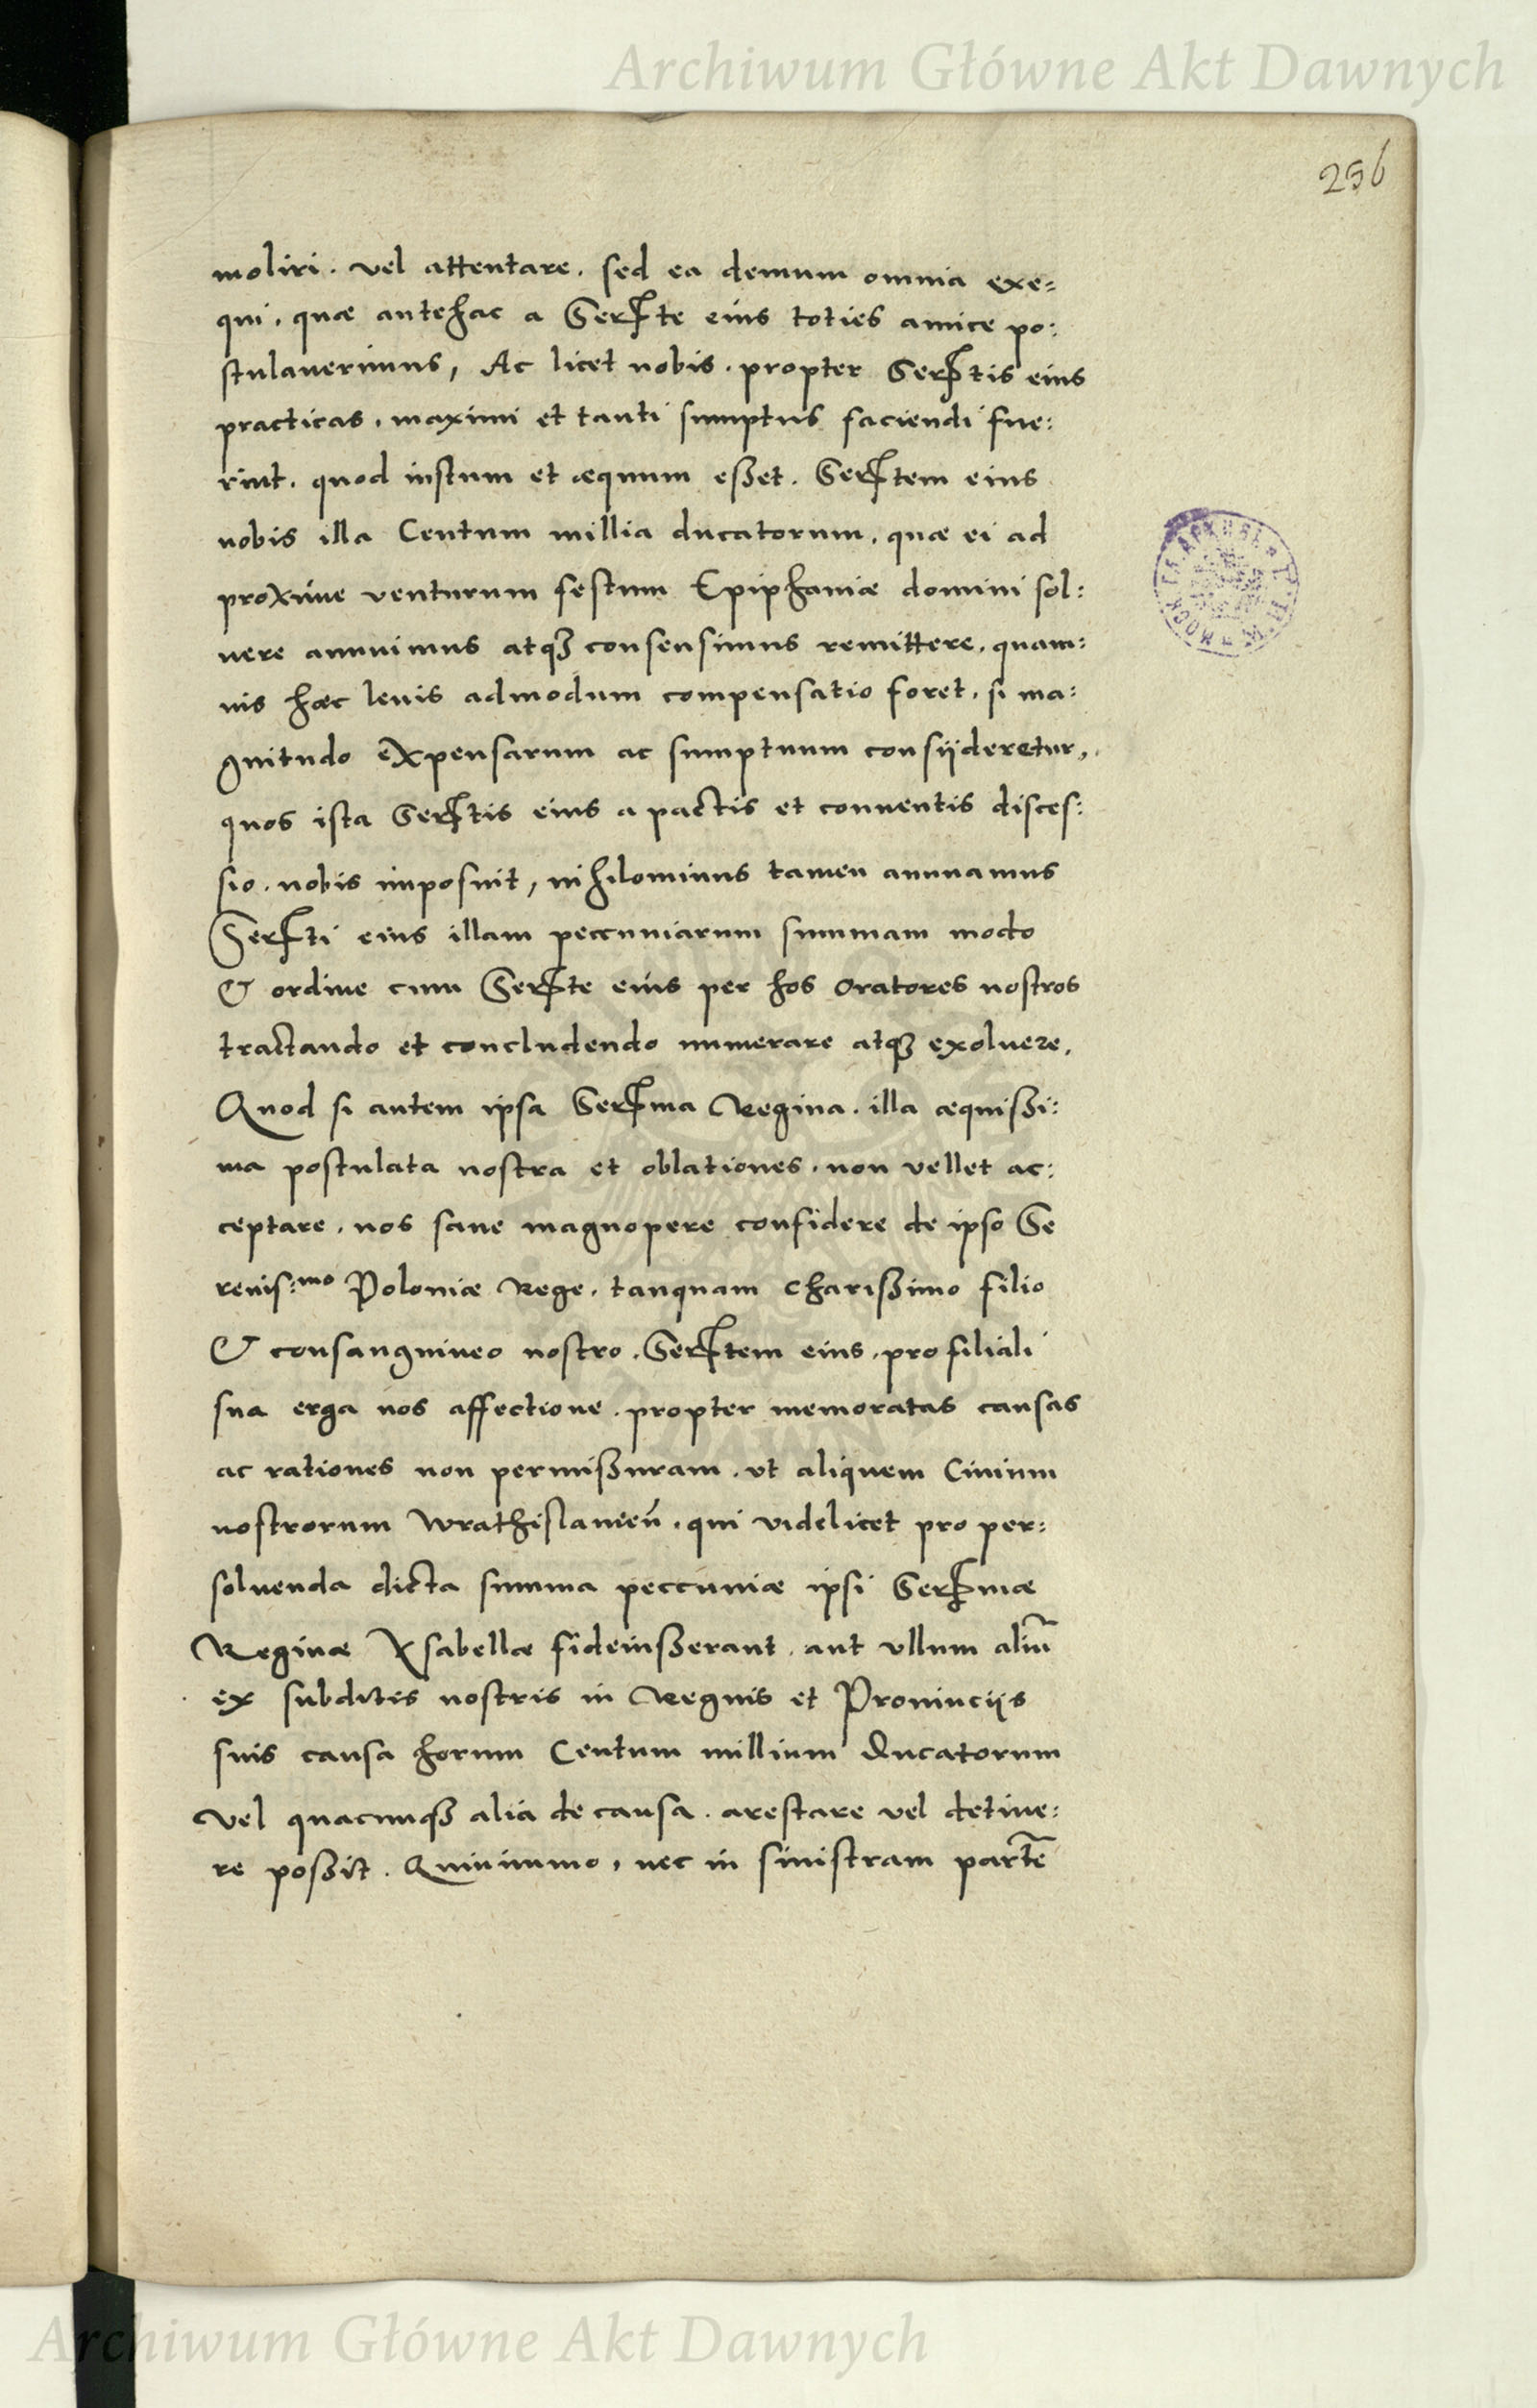 Archiwum Główne Akt Dawnych
256
moliri. vel attentare. sed ea demum omnia exe=
qui, quæ antehac a Serſte eius toties amice po:
stulauerimus, Ac licet nobis. propter Serſtis eius
practicas, maximi et tanti sumptus faciendi fue:
rint. quod iustum et æquum eßet. Serſtem eius
nobis illa Centum millia ducatorum, quæ ei ad
proxime venturum festum Epiphaniæ domini sol:
uere annuimus atqȝ consensimus remittere, quam:
uis hæc leuis admodum compensatio foret, si ma:
gnitudo expensarum ac sumptuum consyderetur,
quos ista Serſtis eius a pactis et conuentis disces:
sio. nobis imposuit, nihilominus tamen annuamus
Serſti eius illam peccuniarum summam modo
& ordine cum Serſte eius per hos Oratores nostros
tractando et concludendo numerare atqȝ exoluere.
Quod si autem ipsa Serſma Regina. illa æquißi:
ma postulata nostra et oblationes. non vellet ac:
ceptare, nos sane magnopere confidere de ipso Se
renis:mo Poloniæ Rege, tanquam charißimo filio
& consanguineo nostro. Serſtem eius, pro filiali
sua erga nos affectione. propter memoratas causas
ac rationes non permißuram, vt aliquem Ciuium
nostrorum Wrathislauien̄. qui videlicet pro per:
soluenda dicta summa peccuniæ ipsi Serſmæ
Reginæ Ysabellæ fideiußerant. aut vllum aliū
ex subditis nostris in Regnis et Prouincijs
suis causa horum Centum millium Ducatorum
vel quacunqȝ alia de causa. arestare vel detine:
re poßit. Quinimmo, nec in sinistram partē
Archiwum Główne Akt Dawnych